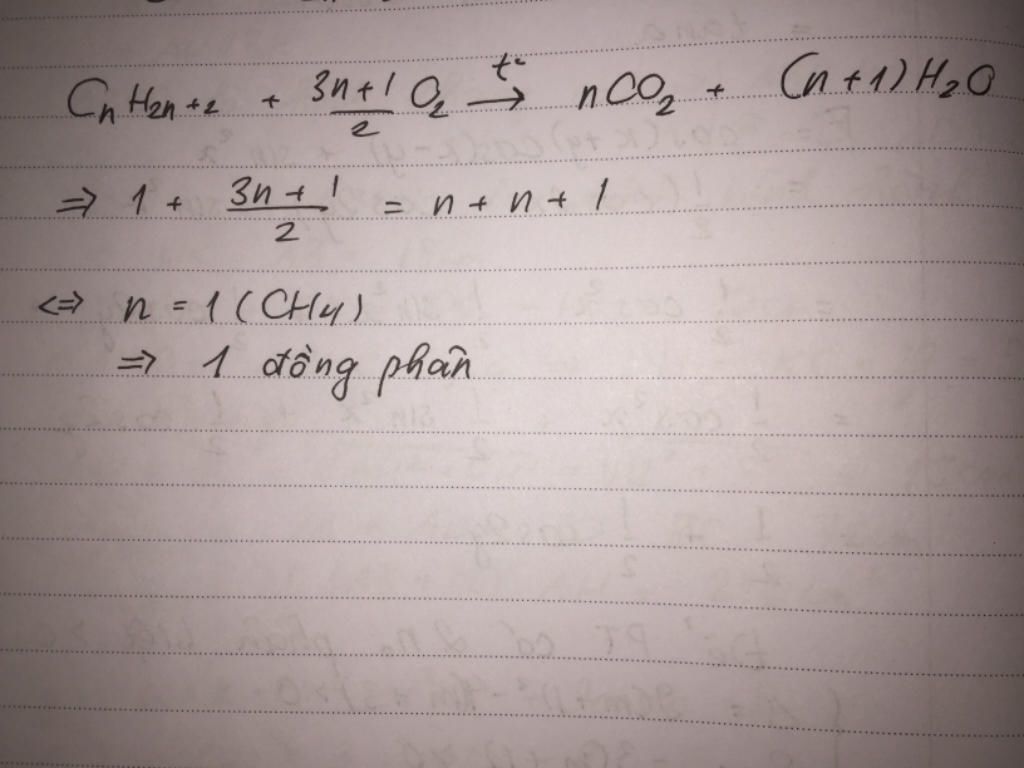 CnH2n+2 + 3n+1/2 O2 t° → nCO2 + (n+1)H2O
⇒ 1 + 3n+1/2 = n + n + 1
<=> n = 1 (CH4)
⇒ 1 đồng phân